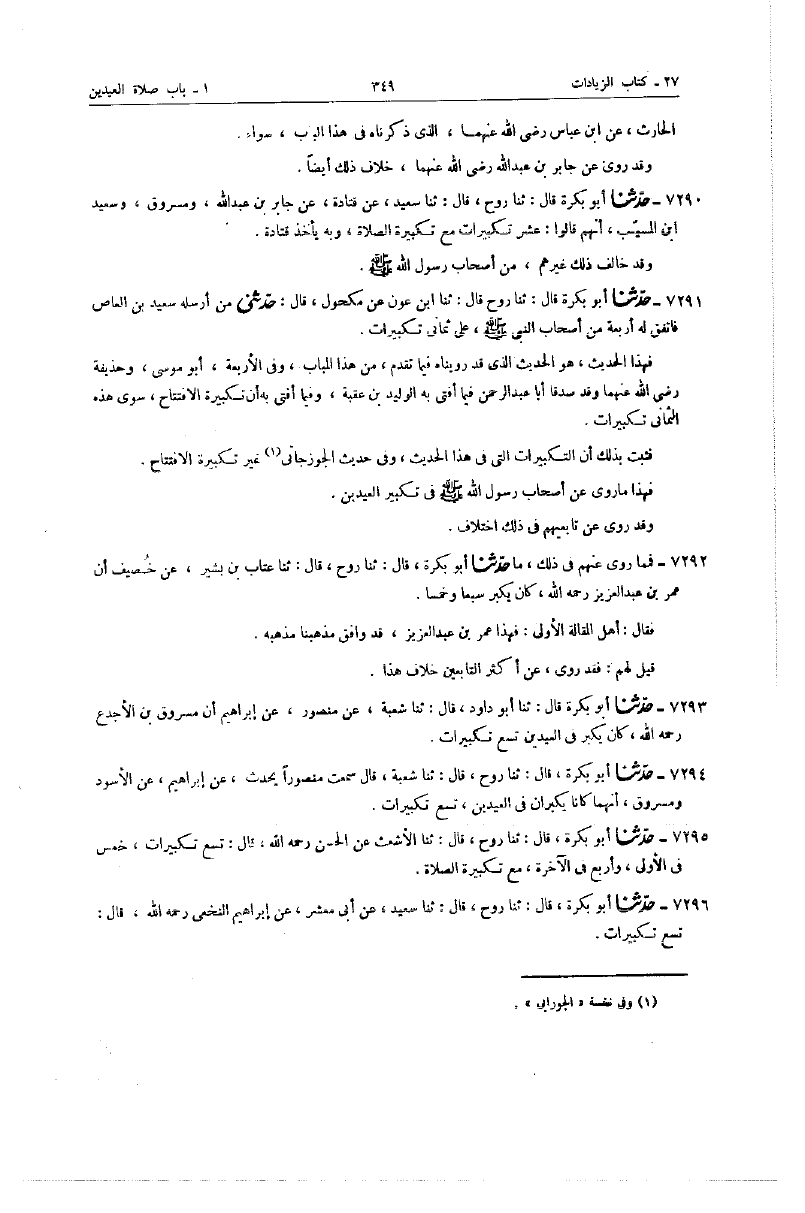 ٢٧ - كتاب الزيادات ٣٤٩ ١ - باب صلاة العيدين
الحارث ، عن ابن عباس رضى الله عنهما ، الذى ذكرناه فى هذا الباب ، سواء .
وقد روى عن جابر بن عبدالله رضى الله عنهما ، خلاف ذلك أيضاً .
٧٢٩٠ - حدّثنا أبو بكرة قال : ثنا روح ، قال : ثنا سعيد ، عن قتادة ، عن جابر بن عبدالله ، ومسروق ، وسعيد
ابن المسيّب ، أنهم قالوا : عشر تكبيرات مع تكبيرة الصلاة ، وبه يأخذ قتادة .
وقد خالف ذلك غيرهم ، من أصحاب رسول الله ﷺ .
٧٢٩١ - حدّثنا أبو بكرة قال : ثنا روح قال : ثنا ابن عون عن مكحول ، قال : حدّثنى من أرسله سعيد بن العاص
فاتفق له أربعة من أصحاب النبى ﷺ ، على ثمانى تكبيرات .
فهذا الحديث ، هو الحديث الذى قد رويناه فيما تقدم ، من هذا الباب ، وفى الأربعة ، أبو موسى ، وحذيفة
رضى الله عنهما وقد صدقا أبا عبدالرحمن فيما أفتى به الوليد بن عقبة ، وفيما أفتى به أن تكبيرة الافتتاح ، سوى هذه
الثمانى تكبيرات .
فثبت بذلك أن التكبيرات التى فى هذا الحديث ، وفى حديث الجوزجانى(١) غير تكبيرة الافتتاح .
فهذا ماروى عن أصحاب رسول الله ﷺ فى تكبير العيدين .
وقد روى عن تابعيهم فى ذلك اختلاف .
٧٢٩٢ - فما روى عنهم فى ذلك ، ما حدّثنا أبو بكرة ، قال : ثنا روح ، قال : ثنا عتاب بن بشير ، عن خُصيف أن
عمر بن عبدالعزيز رحمه الله ، كان يكبر سبعا وخمسا .
فقال : أهل المقالة الأولى : فهذا عمر بن عبدالعزيز ، قد وافق مذهبنا مذهبه .
قيل لهم : فقد روى ، عن أكثر التابعين خلاف هذا .
٧٢٩٣ - حدّثنا أبو بكرة قال : ثنا أبو داود ، قال : ثنا شعبة ، عن منصور ، عن إبراهيم أن مسروق بن الأجدع
رحمه الله ، كان يكبر فى العيدين تسع تكبيرات .
٧٢٩٤ - حدّثنا أبو بكرة ، قال : ثنا روح ، قال : ثنا شعبة ، قال سمعت منصوراً يحدث ، عن إبراهيم ، عن الأسود
ومسروق ، أنهما كانا يكبران فى العيدين ، تسع تكبيرات .
٧٢٩٥ - حدّثنا أبو بكرة ، قال : ثنا روح ، قال : ثنا الأشعث عن الحسن رحمه الله ، قال : تسع تكبيرات ، خمس
فى الأولى ، وأربع فى الآخرة ، مع تكبيرة الصلاة .
٧٢٩٦ - حدّثنا أبو بكرة ، قال : ثنا روح ، قال : ثنا سعيد ، عن أبى معشر ، عن إبراهيم النخعى رحمه الله ، قال :
تسع تكبيرات .
(١) وفى نسخة « الجورابى » .